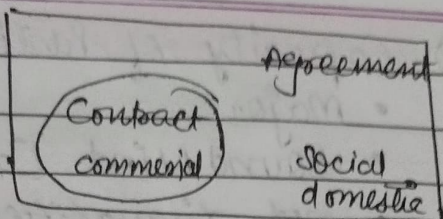 Agreement
Contract
commercial
Social
domestic